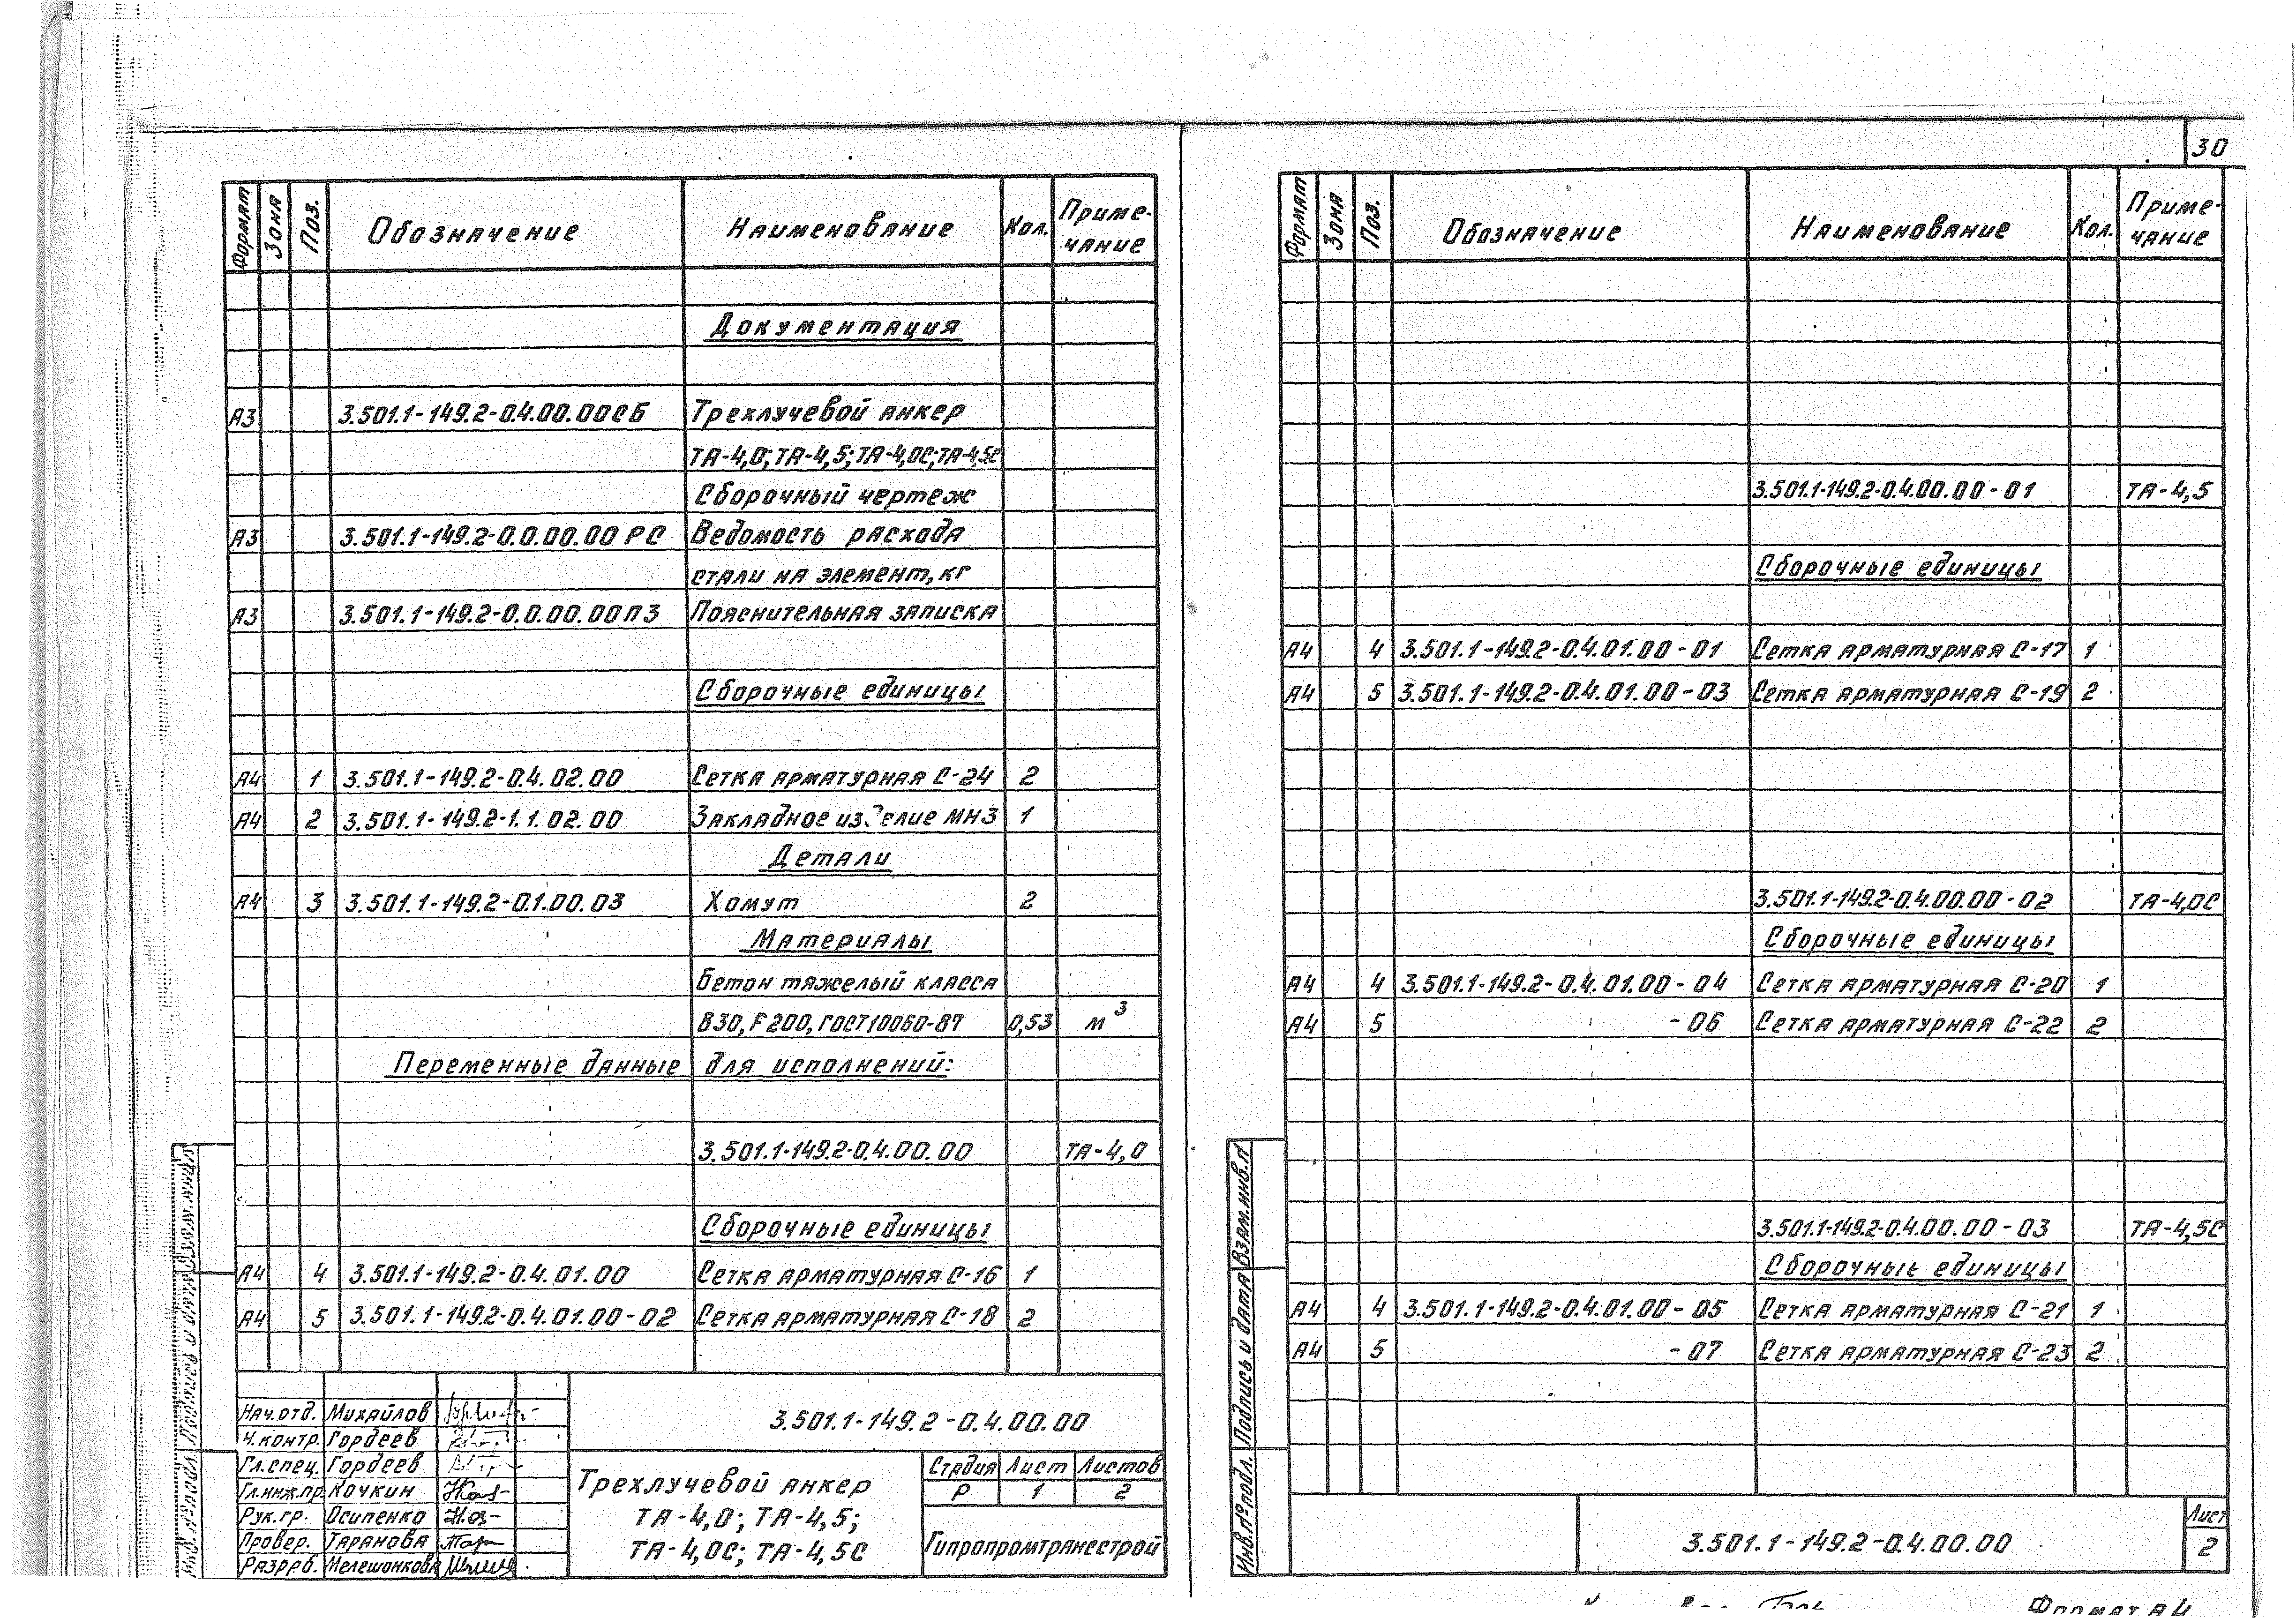 30
Формат Зона Поз. Обозначение Наименование Кол. Приме-
чание
Документация
А3 3.501.1-149.2-0.4.00.00СБ Трехлучевой анкер
ТА-4,0; ТА-4,5; ТА-4,0С; ТА-4,5С
Сборочный чертеж
А3 3.501.1-149.2-0.0.00.00 РС Ведомость расхода
стали на элемент, кг
А3 3.501.1-149.2-0.0.00.00ПЗ Пояснительная записка
Сборочные единицы
А4 1 3.501.1-149.2-0.4.02.00 Сетка арматурная С-24 2
А4 2 3.501.1-149.2-1.1.02.00 Закладное изделие МН3 1
Детали
А4 3 3.501.1-149.2-0.1.00.03 Хомут 2
Материалы
Бетон тяжелый класса
В30, F200, ГОСТ10060-87 0,53 м³
Переменные данные для исполнений:
3.501.1-149.2-0.4.00.00 ТА-4,0
Сборочные единицы
А4 4 3.501.1-149.2-0.4.01.00 Сетка арматурная С-16 1
А4 5 3.501.1-149.2-0.4.01.00-02 Сетка арматурная С-18 2
Нач.отд. Михайлов
Н.контр. Гордеев
Гл.спец. Гордеев
Гл.инж.пр. Кочкин
Рук.гр. Осипенко
Провер. Таранова
Разраб. Мелешонкова
3.501.1-149.2-0.4.00.00
Трехлучевой анкер
ТА-4,0; ТА-4,5;
ТА-4,0С; ТА-4,5С
Стадия Лист Листов
Р 1 2
Гипропромтрансстрой
Формат Зона Поз. Обозначение Наименование Кол. Приме-
чание
3.501.1-149.2-0.4.00.00-01 ТА-4,5
Сборочные единицы
А4 4 3.501.1-149.2-0.4.01.00-01 Сетка арматурная С-17 1
А4 5 3.501.1-149.2-0.4.01.00-03 Сетка арматурная С-19 2
3.501.1-149.2-0.4.00.00-02 ТА-4,0С
Сборочные единицы
А4 4 3.501.1-149.2-0.4.01.00-04 Сетка арматурная С-20 1
А4 5 -06 Сетка арматурная С-22 2
3.501.1-149.2-0.4.00.00-03 ТА-4,5С
Сборочные единицы
А4 4 3.501.1-149.2-0.4.01.00-05 Сетка арматурная С-21 1
А4 5 -07 Сетка арматурная С-23 2
Инв.№подл. Подпись и дата Взам.инв.№
3.501.1-149.2-0.4.00.00
Лист
2
Формат А4